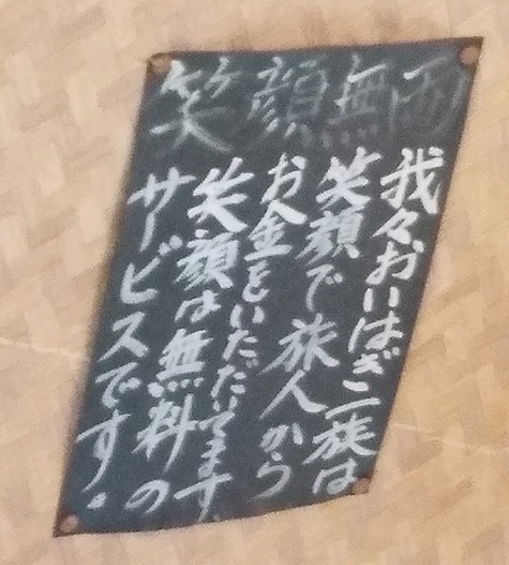 笑顔無両
我々おいはぎ一族は
笑顔で旅人から
お金をいただいてます
笑顔は無料の
サービスです。